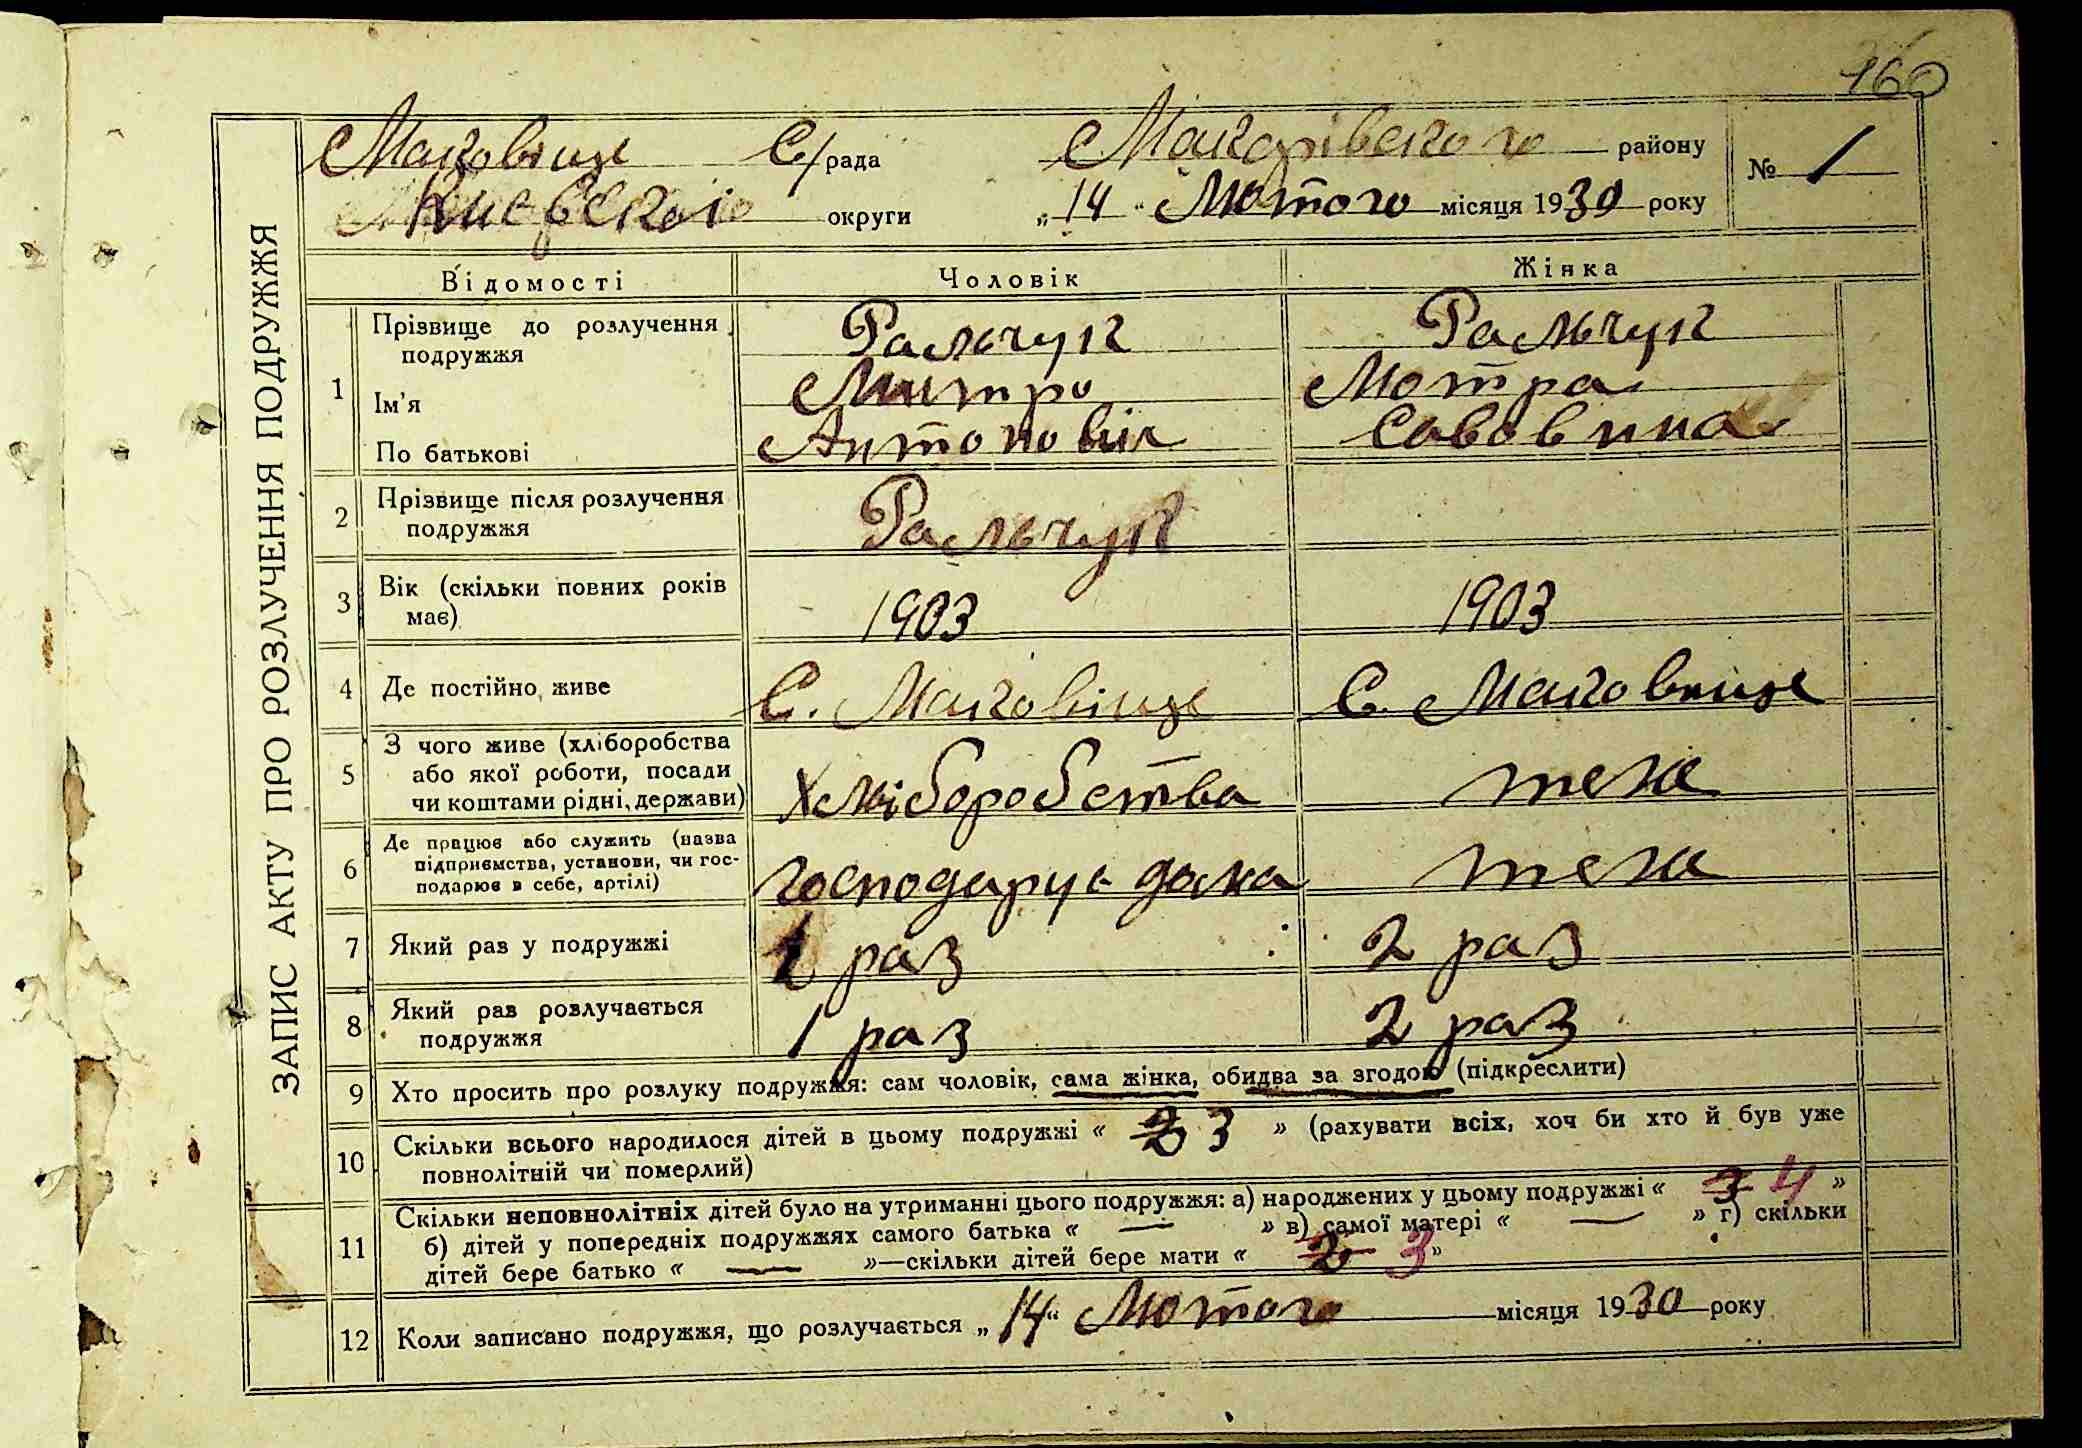 160
ЗАПИС АКТУ ПРО РОЗЛУЧЕННЯ ПОДРУЖЖЯ
Маковище С/рада Макарівського району № 1
Киевської округи „14“ Лютого місяця 1930 року
Відомості Чоловік Жінка
1 Прізвище до розлучення подружжя Ральчук Ральчук
Ім'я Митро Мотра
По батькові Антонович Савовина
2 Прізвище після розлучення
подружжя Ральчук
3 Вік (скільки повних років
має) 1903 1903
4 Де постійно живе С. Маковище С. Маковище
5 З чого живе (хліборобства
або якої роботи, посади
чи коштами рідні, держави) Хліборобства теж
6 Де працює або служить (назва
підприємства, установи, чи гос-
подарює в себе, артілі) господарує дома теж
7 Який раз у подружжі 1 раз 2 раз
8 Який раз розлучається
подружжя 1 раз 2 раз
9 Хто просить про розлуку подружжя: сам чоловік, сама жінка, обидва за згодою (підкреслити)
10 Скільки всього народилося дітей в цьому подружжі « 2 3 » (рахувати всіх, хоч би хто й був уже
повнолітній чи померлий)
11 Скільки неповнолітніх дітей було на утриманні цього подружжя: а) народжених у цьому подружжі « 3 4 »
б) дітей у попередніх подружжях самого батька « — » в) самої матері « — » г) скільки
дітей бере батько « — »—скільки дітей бере мати « 2 3 »
12 Коли записано подружжя, що розлучається „14“ Лютого місяця 1930 року